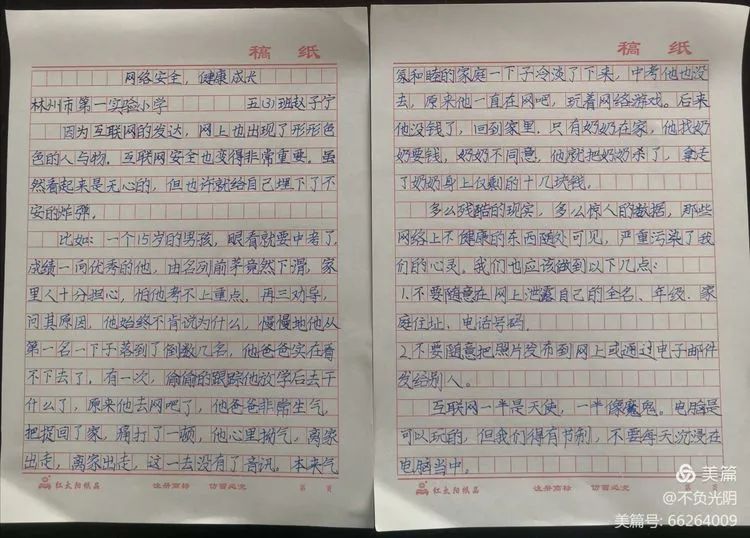 稿 纸
网络安全，健康成长
林州市第一实验小学 五(3)班赵子宁
因为互联网的发达，网上也出现了形形色
色的人与物。互联网安全也变得非常重要。虽
然看起来是无心的，但也许就给自己埋下了不
安的炸弹。
比如：一个15岁的男孩，眼看就要中考了，
成绩一向优秀的他，由名列前茅竟然下滑，家
里人十分担心，怕他考不上重点，再三劝导，
问其原因，他始终不肯说为什么，慢慢地他从
第一名一下子落到了倒数几名，他爸爸实在看
不下去了，有一次，偷偷的跟踪他放学后去干
什么了，原来他去网吧了，他爸爸非常生气，
把捉回了家，痛打了一顿，他心里拗气，离家
出走，离家出走，这一去没有了音讯。本来气
红太阳纸品 注册商标 仿冒必究 第 页
稿 纸
氛和睦的家庭一下子冷淡了下来，中考他也没
去，原来他一直在网吧，玩着网络游戏。后来
他没钱了，回到家里，只有奶奶在家，他找奶
奶要钱，奶奶不同意，他就把奶奶杀了，拿走
了奶奶身上仅剩的十几块钱。
多么残酷的现实，多么惊人的数据，那些
网络上不健康的东西随处可见，严重污染了我
们的心灵。我们也应该做到以下几点：
1.不要随意在网上泄露自己的全名、年级、家
庭住址、电话号码。
2.不要随意把照片发布到网上或通过电子邮件
发给别人。
互联网一半是天使，一半像魔鬼。电脑是
可以玩的，但我们得有节制，不要每天沉浸在
电脑当中。
红太阳纸品 注册商标 仿冒必究 第 页
美篇
@不负光阴
美篇号: 66264009